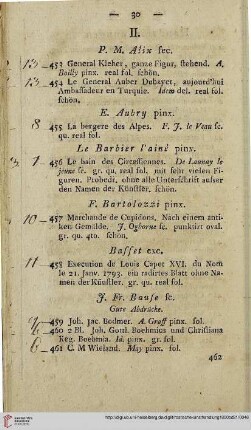 — 30 —
II.
P. M. Alix sc.
13 —452 General Kleber, ganze Figur, stehend. A.
Boilly pinx. real fol. schön.
13 —454 Le General Auber Dubayet, aujourd'hui
Ambassadeur en Turquie. Idem del. real fol.
schön.
E. Aubry pinx.
8 455 La bergere des Alpes. F. J. le Veau sc.
qu. real fol.
Le Barbier l'ainé pinx.
456 Le bain des Circassiennes. De Launay le
jeune sc. gr. qu. real fol. mit sehr vielen Fi-
guren. Probedr. ohne alle Unterschrift ausser
den Namen der Künstler, schön.
F. Bartolozzi pinx.
10 —457 Marchande de Cupidons, Nach einem anti-
ken Gemälde. J. Ogborne sc. punktirt oval.
gr. qu. 4to. schön.
Basset exc.
11 —458 Execution de Louis Capet XVI. du Nom
le 21. Janv. 1793. ein radirtes Blatt ohne Na-
men der Künstler. gr. qu. real fol.
J. Fr. Bause sc.
Gute Abdrücke.
459 Joh. Jac. Bodmer. A. Graff pinx. fol.
460 2 Bl. Joh. Gottl. Boehmius und Christiana
Reg. Boehmia. Id. pinx. gr. fol.
6 —461 C. M Wieland. May pinx. fol.
462